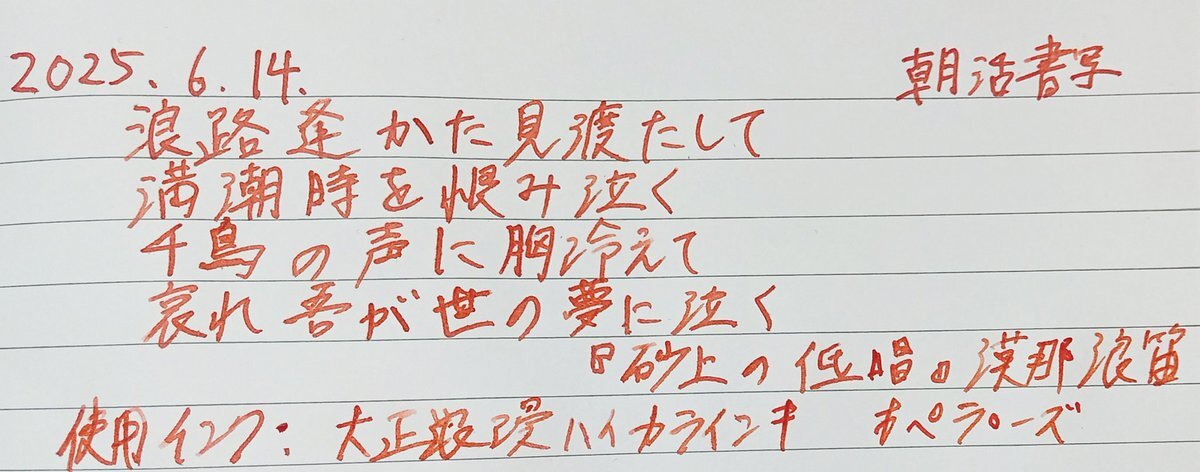 2025.6.14. 朝活書写
浪路逢かた見渡たして
満潮時を恨み泣く
千鳥の声に胸冷えて
哀れ吾が世の夢に泣く
『砂上の低唱』漠那浪笛
使用インク：大正浪漫ハイカラインキ オペラローズ